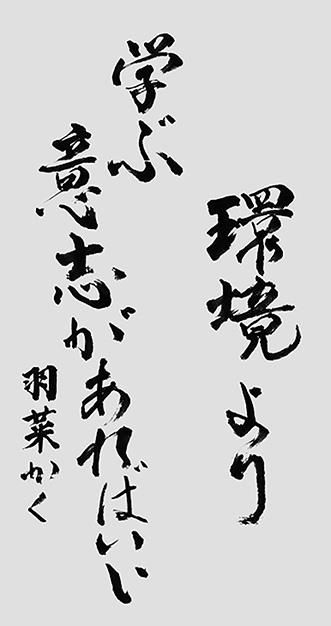 環境より
学ぶ
意志があればいい
羽菜かく